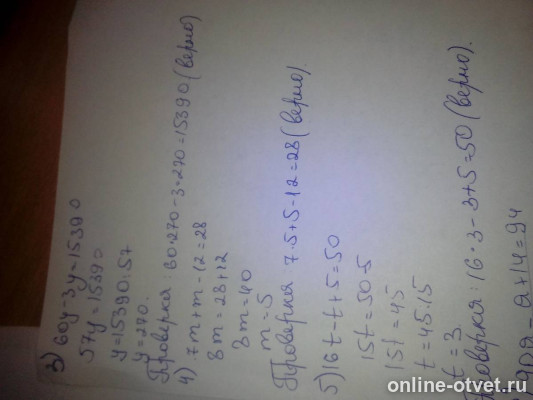 3) 60y-3y=15390
57y=15390
y=15390:57
y=270.
Проверка: 60·270-3·270=15390 (верно)
4) 7m+m-12=28
8m=28+12
8m=40
m=5
Проверка: 7·5+5-12=28 (верно).
5) 16t-t+5=50
15t=50-5
15t=45
t=45:15
t=3.
Проверка: 16·3-3+5=50 (верно).
-a+14=94
online-otvet.ru